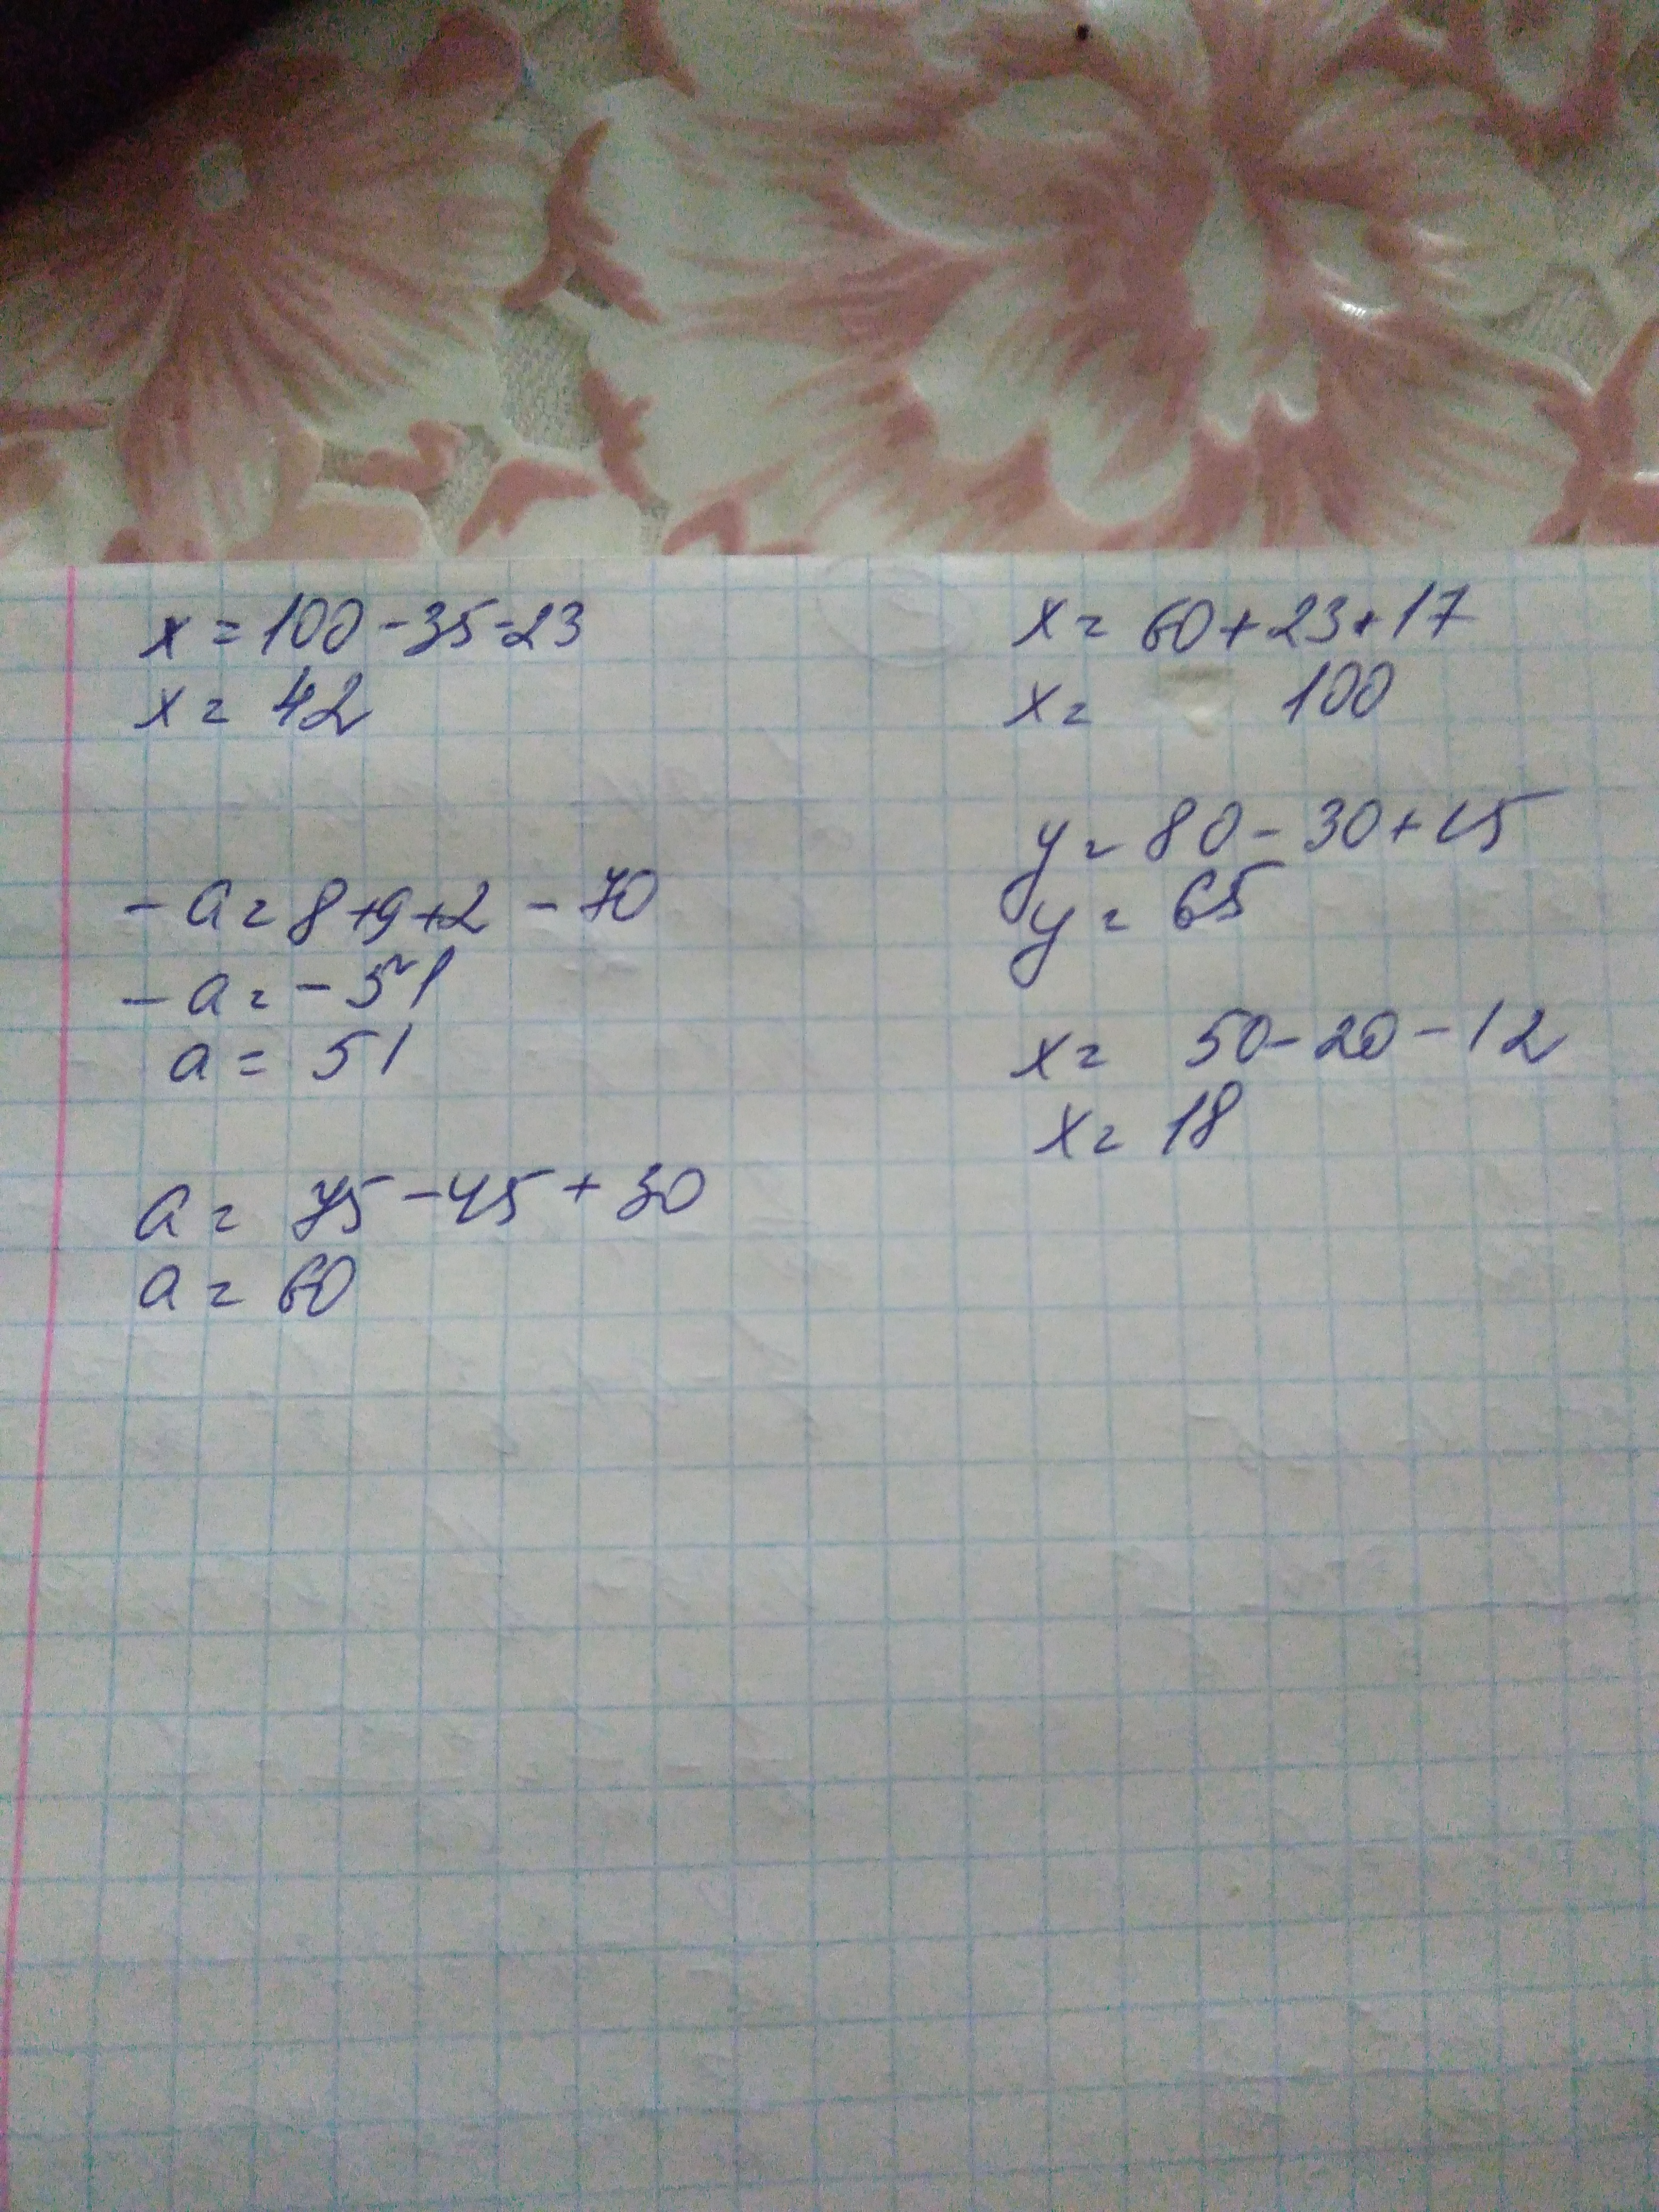 x = 100 - 35 - 23
x = 42
- a = 8 + 9 + 2 - 70
- a = - 51
a = 51
a = 75 - 45 + 30
a = 60
x = 60 + 23 + 17
x = 100
y = 80 - 30 + 15
y = 65
x = 50 - 20 - 12
x = 18